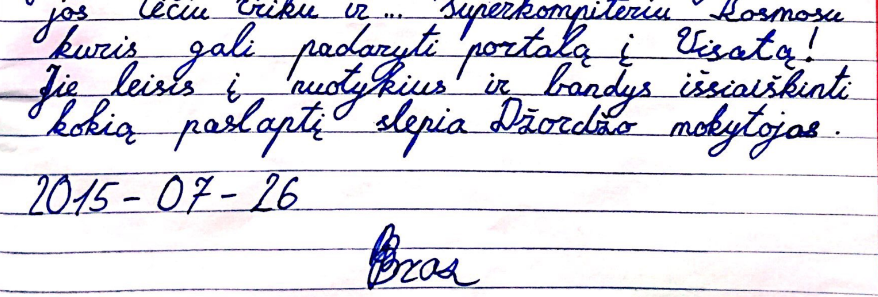 jos tėčiu Eriku ir ... superkompiteriu Kosmosu
kuris gali padaryti portalą į Visatą!
Jie leisis į nuotykius ir bandys išsiaiškinti
kokią paslaptį slepia Džordžo mokytojas.
2015-07-26